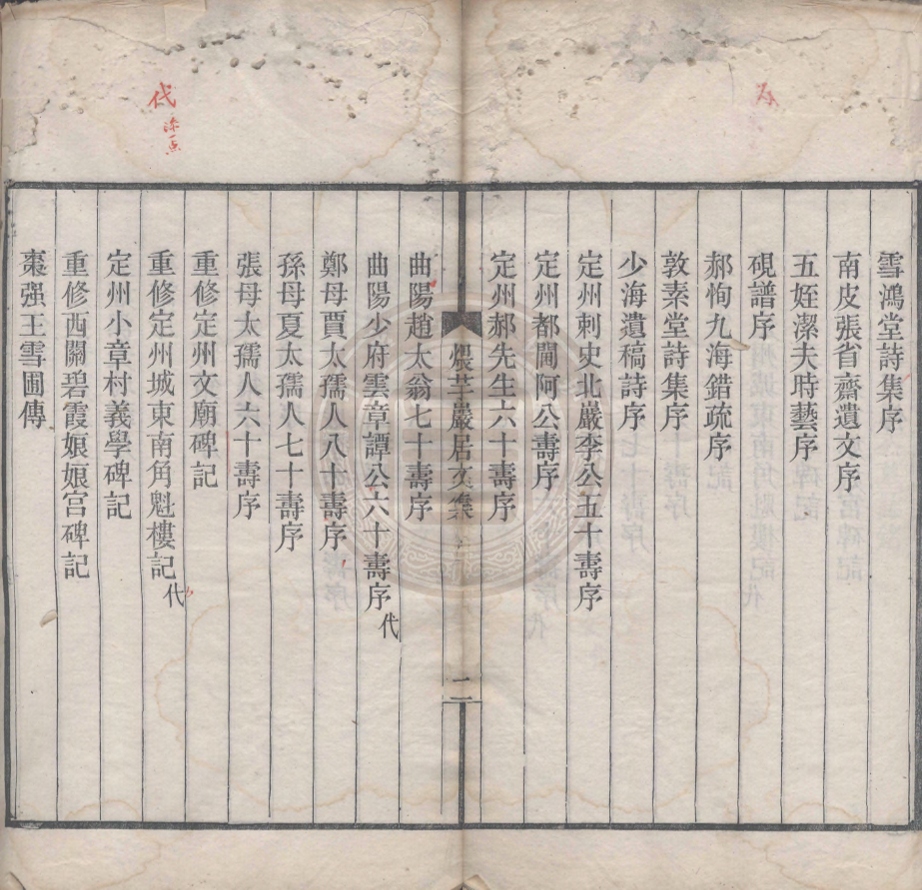 雪鴻堂詩集序
南皮張省齋遺文序
五姪潔夫時藝序
硯譜序
郝恂九海錯疏序
敦素堂詩集序
少海遺稿詩序
定州刺史北巖李公五十壽序
定州都閫阿公壽序
定州郝先生六十壽序
煨芋巖居文集
二
曲陽趙太翁七十壽序
曲陽少府雲章譚公六十壽序代
鄭母賈太孺人八十壽序
孫母夏太孺人七十壽序
張母太孺人六十壽序
重修定州文廟碑記
重修定州城東南角魁樓記代
定州小章村義學碑記
重修西關碧霞娘娘宮碑記
棗强王雪圃傳
代